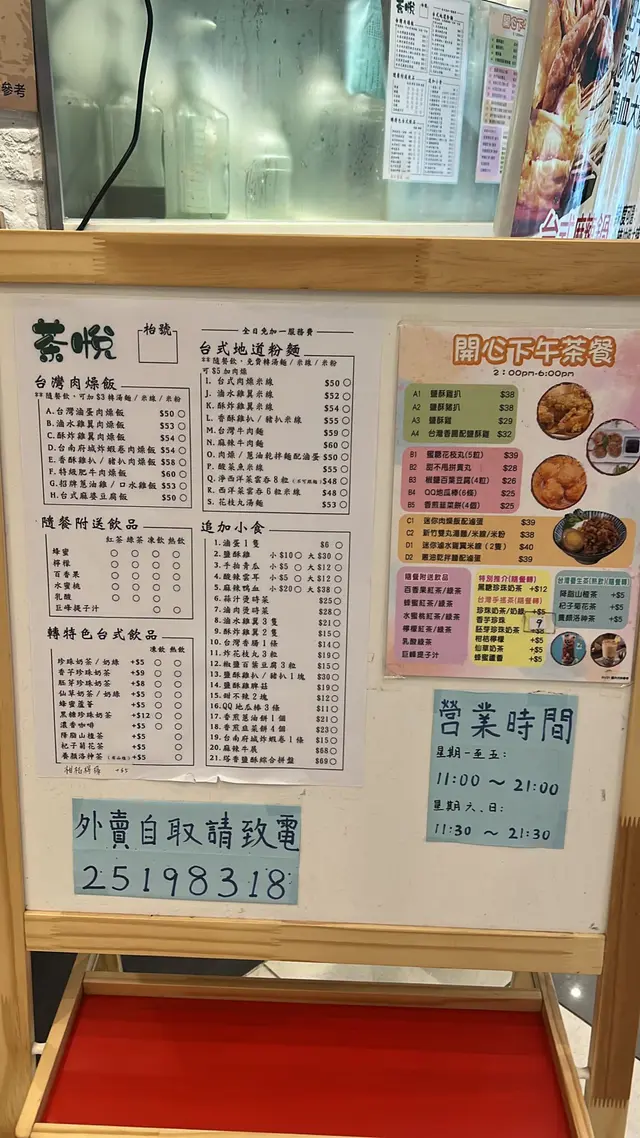 參考
茶悅
枱號
台灣肉燥飯
** 隨餐飲，可加 $3 轉湯麵 / 米線 / 米粉
A.台灣滷蛋肉燥飯 $50
B.滷水雞翼肉燥飯 $53
C.酥炸雞翼肉燥飯 $54
D.台南府城炸蝦卷肉燥飯 $54
E.香酥雞扒 / 豬扒肉燥飯 $58
F.特級肥牛肉燥飯 $60
G.招牌蔥油雞 / 口水雞飯 $53
H.台式麻婆豆腐飯 $50
隨餐附送飲品
紅茶 綠茶 凍飲 熱飲
蜂蜜
檸檬
百香果
水蜜桃
乳酸
巨峰提子汁
轉特色台式飲品
凍飲 熱飲
珍珠奶茶 / 奶綠 +$5
香芋珍珠 +$9
胚芽珍珠奶茶 +$8
仙草奶茶 / 奶綠 +$5
蜂蜜蘆薈 +$5
黑糖珍珠奶茶 +$12
濃香咖啡 +$5
降脂山楂茶 +$5
杞子菊花茶 +$5
養顏洛神茶 +$5
柑桔檸檬 +$5
全日免加一服務費
台式地道粉麵
** 隨餐飲，免費轉湯麵 / 米線 / 米粉
可 $5 加肉燥
I. 台式肉燥米線 $50
J. 滷水雞翼米線 $52
K. 酥炸雞翼米線 $54
L. 香酥雞扒 / 豬扒米線 $55
M. 台灣牛肉麵 $59
N. 麻辣牛肉麵 $60
O. 肉燥 / 蔥油乾拌麵配滷蛋 $50
P. 酸菜魚米線 $55
Q. 淨西洋菜雲吞 8 粒 $48
R. 西洋菜雲吞 6 粒米線 $48
S. 花枝丸湯麵 $53
追加小食
1. 滷蛋 1 隻 $6
2. 鹽酥雞 小 $10 大 $30
3. 手拍青瓜 小 $5 大 $12
4. 酸辣雲耳 小 $5 大 $12
5. 麻辣鴨血 小 $20 大 $38
6. 蒜汁燙時菜 $25
7. 滷肉燙時菜 $28
8. 滷水雞翼 3 隻 $21
9. 酥炸雞翼 2 隻 $15
10. 台灣香腸 1 條 $14
11. 炸花枝丸 3 粒 $19
12. 椒鹽百葉豆腐 3 粒 $15
13. 鹽酥雞扒 / 豬扒 1 塊 $30
14. 鹽酥雞脾菇 $19
15. 甜不辣 2 塊 $12
16. QQ 地瓜棒 3 條 $11
17. 香煎蔥油餅 1 個 $21
18. 香煎韭菜餅 4 個 $23
19. 台南府城炸蝦卷 1 條 $15
20. 麻辣牛展 $68
21. 塔香鹽酥綜合拼盤 $69
開心下午茶餐
2:00pm-6:00pm
A1 鹽酥雞扒 $38
A2 鹽酥豬扒 $38
A3 鹽酥雞 $29
A4 台灣香腸配鹽酥雞 $32
B1 蜜糖花枝丸(5粒) $39
B2 甜不甩拼貢丸 $28
B3 椒鹽百葉豆腐(4粒) $26
B4 QQ地瓜棒(6條) $25
B5 香煎韮菜餅(4個) $25
C1 迷你肉燥飯配滷蛋 $39
C2 新竹雙丸湯麵/米線/米粉 $39
D1 迷你滷水雞翼米線(2隻) $40
D2 蔥油乾拌麵配滷蛋 $39
隨餐附送飲品
百香果紅茶/綠茶
蜂蜜紅茶/綠茶
水蜜桃紅茶/綠茶
檸檬紅茶/綠茶
乳酸綠茶
巨峰提子汁
特別推介(隨餐轉)
黑糖珍珠奶茶 +$12
台灣手搖茶(隨餐轉)
珍珠奶茶/奶綠 +$5
香芋珍珠 9
胚芽珍珠奶茶
仙草奶茶 +$5
柑桔檸檬 +$5
蜂蜜蘆薈 +$5
台灣養生茶(熱飲)(隨餐轉)
降脂山楂茶 +$5
杞子菊花茶 +$5
養顏洛神茶 +$5
營業時間
星期一至五:
11:00 ～ 21:00
星期六、日:
11:30 ～ 21:30
外賣自取請致電
25198318